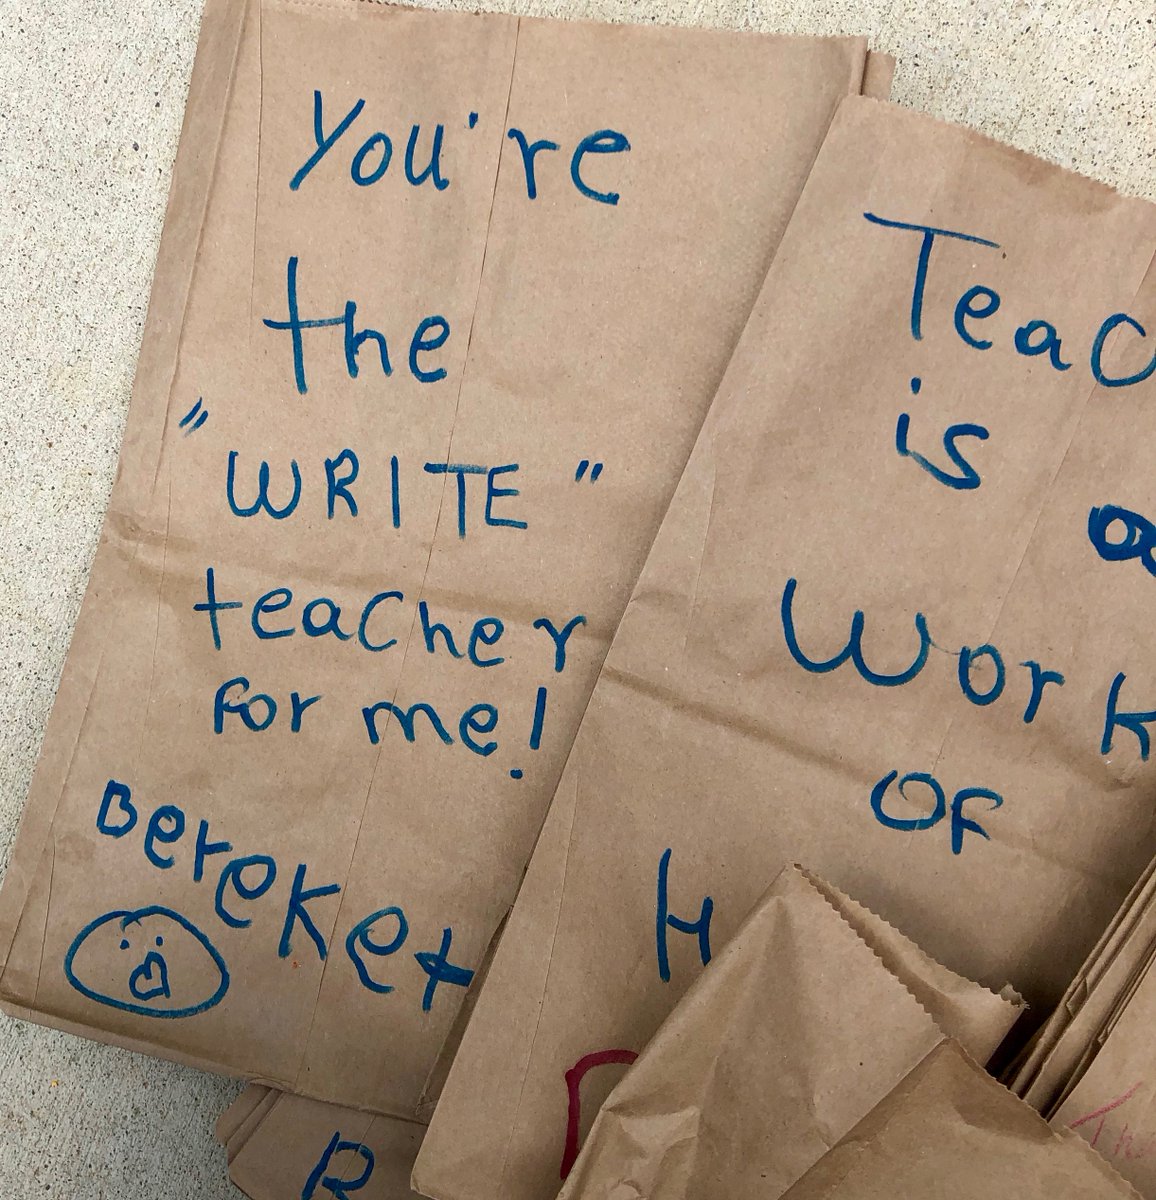 You're
the
"WRITE"
teacher
for me!
Bereket
Teac
is
a
Work
of
H
R